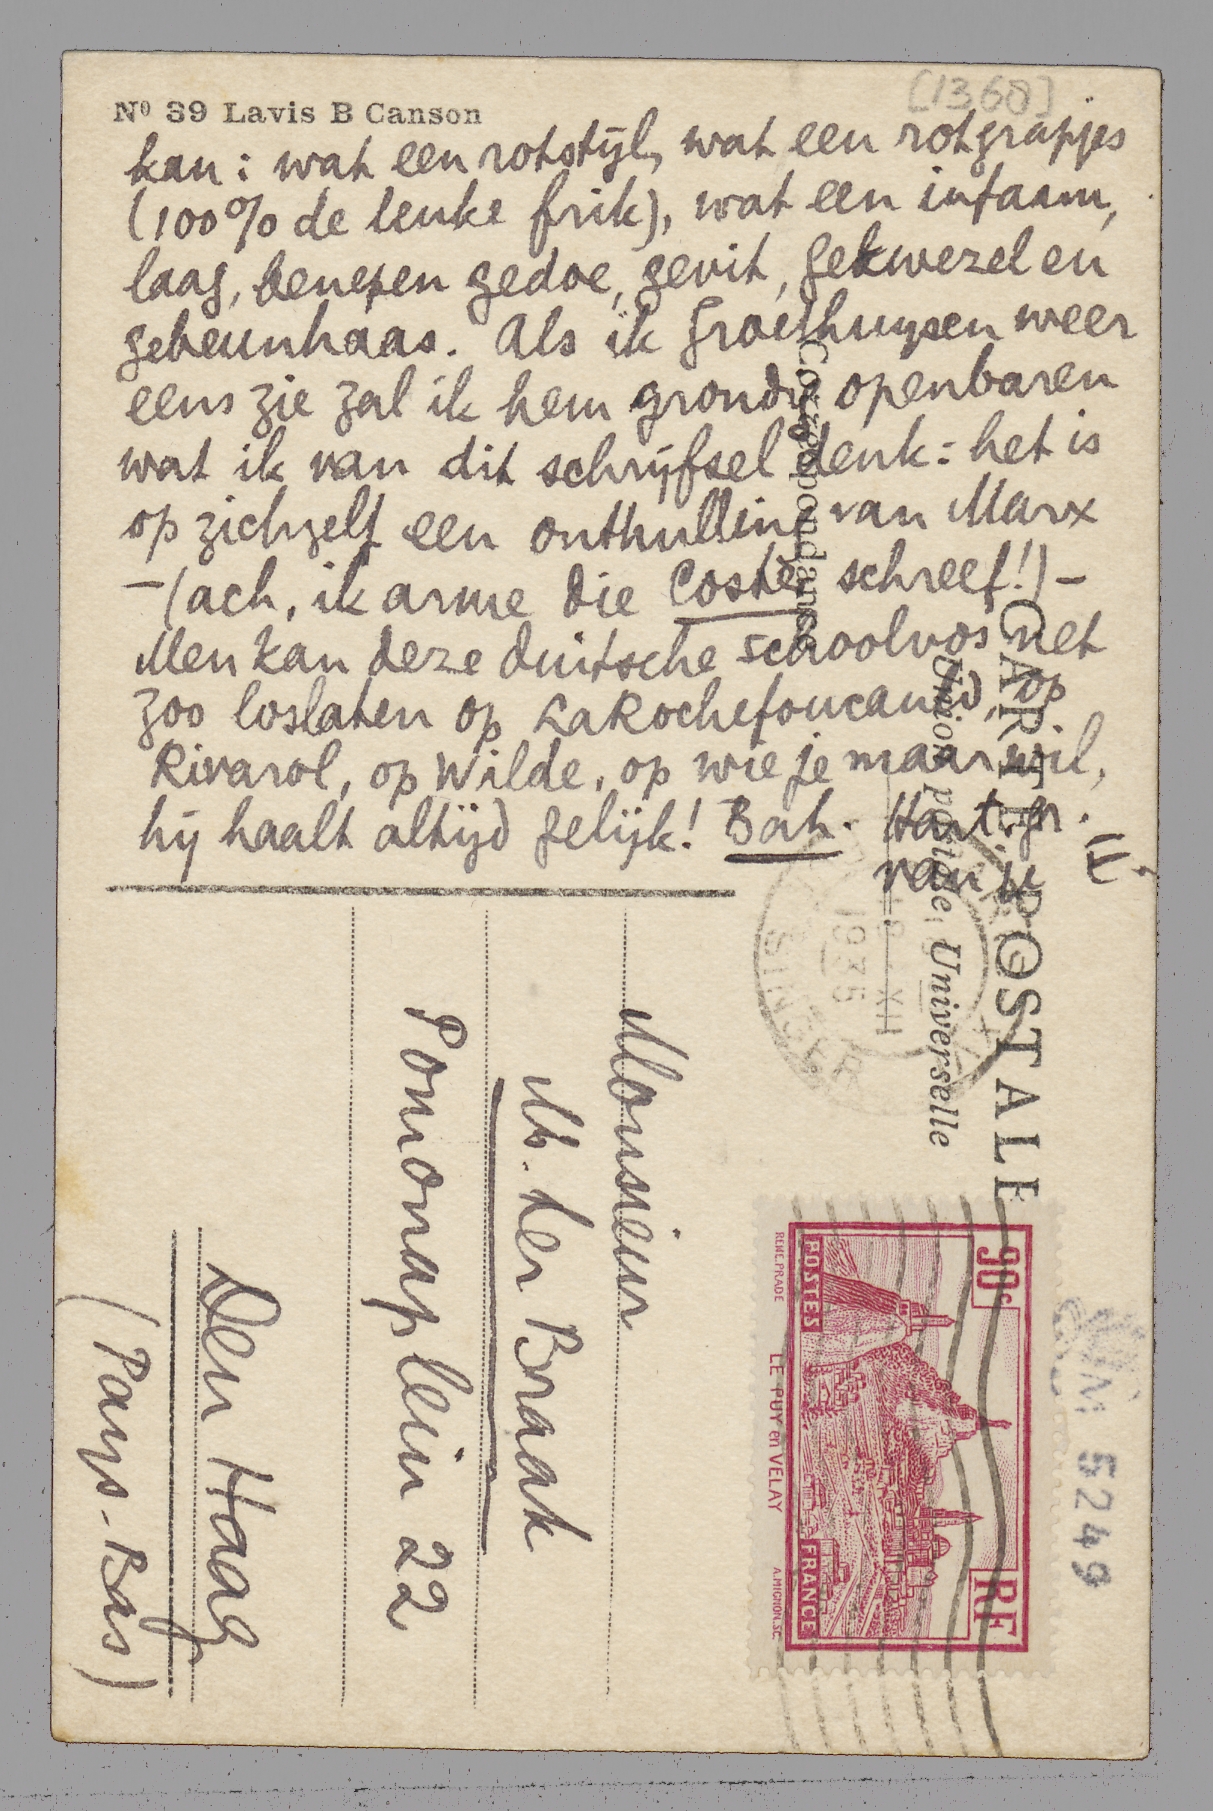 [1368]
Nº 39 Lavis B Canson
kan: wat een rotstijl, wat een rotgrapjes
(100% de leuke frik), wat een infaam,
laag, benepen gedoe, gevit, gekwezel en
gebeunhaas. Als ik Groethuysen weer
eens zie zal ik hem grondig openbaren
wat ik van dit schrijfsel denk: het is
op zichzelf een onthulling van Marx
– (ach, ik arme die Coster schreef!) –
Men kan deze duitsche schoolvos net
zoo loslaten op LaRochefoucauld, op
Rivarol, op Wilde, op wie je maar wil,
hij haalt altijd gelijk! Bah. Hart. gr.
van je E.
CARTE POSTALE
Union postale Universelle
Correspondance
1935
Monsieur
M. ter Braak
Pomonaplein 22
Den Haag
(Pays-Bas)
90c
RF
POSTES
FRANCE
RENE.PRADE
LE PUY en VELAY
A.MIGNON.SC.
5249